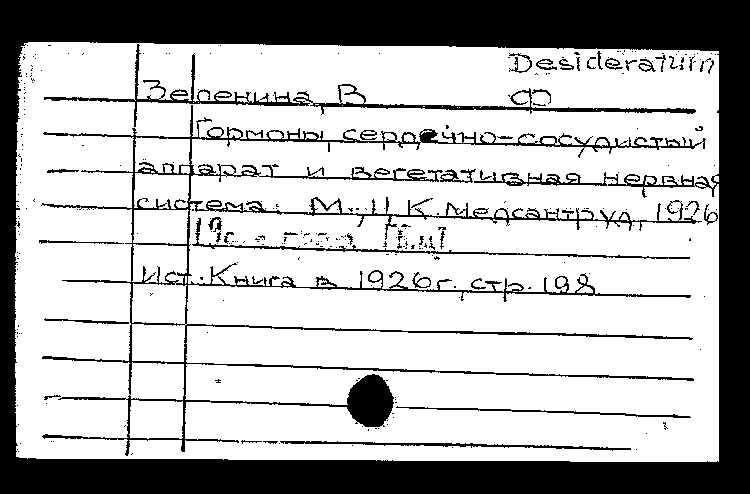 Desideratum
Зеленина, В Ф
Гормоны, сердечно-сосудистый
аппарат и вегетативная нервная
система. М., Ц.К. Медсантруд, 1926
19с.
Ист.: Книга в 1926г., стр. 198